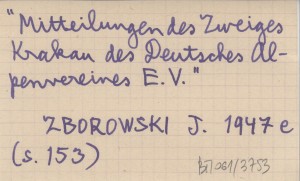 "Mitteilungen des Zweiges
Krakau des Deutsches Al-
penvereines E.V."
ZBOROWSKI J. 1947 e
(s. 153)
BT/061/3753